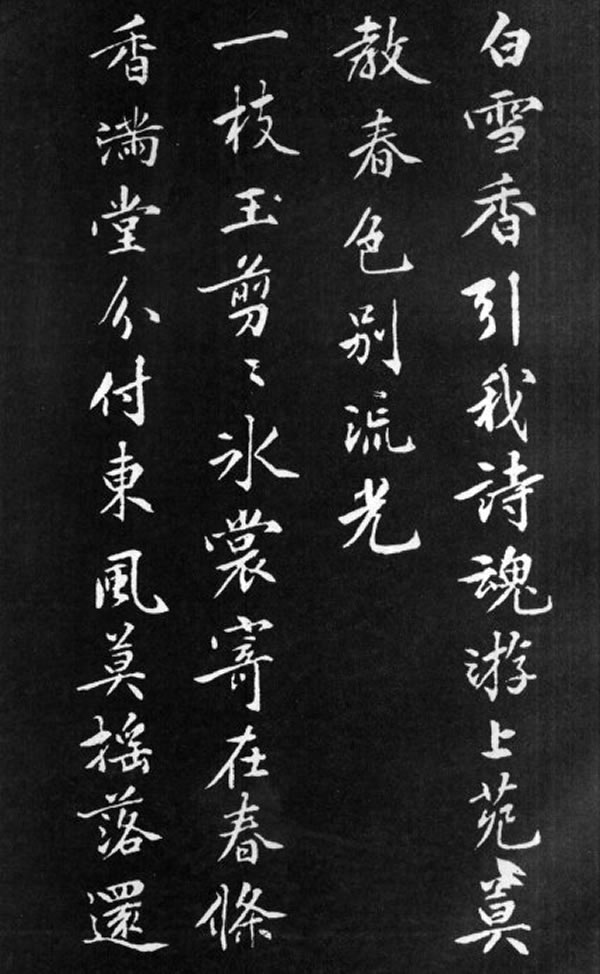 白雪香引我詩魂游上苑莫
教春色別流光
一枝玉剪々冰裳寄在春條
香滿堂分付東風莫搖落還